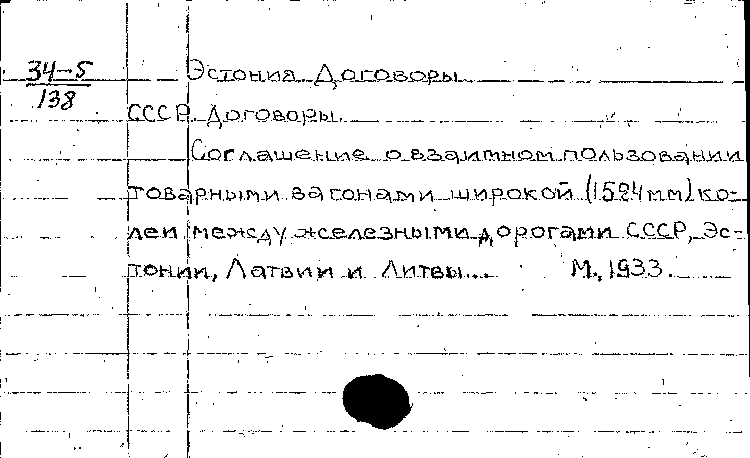 34-5
138
Эстония. Договоры.
СССР. Договоры.
Соглашение о взаимном пользовании
товарными вагонами широкой (1524 мм) ко-
леи между железными дорогами СССР, Эс-
тонии, Латвии и Литвы... М., 1933.